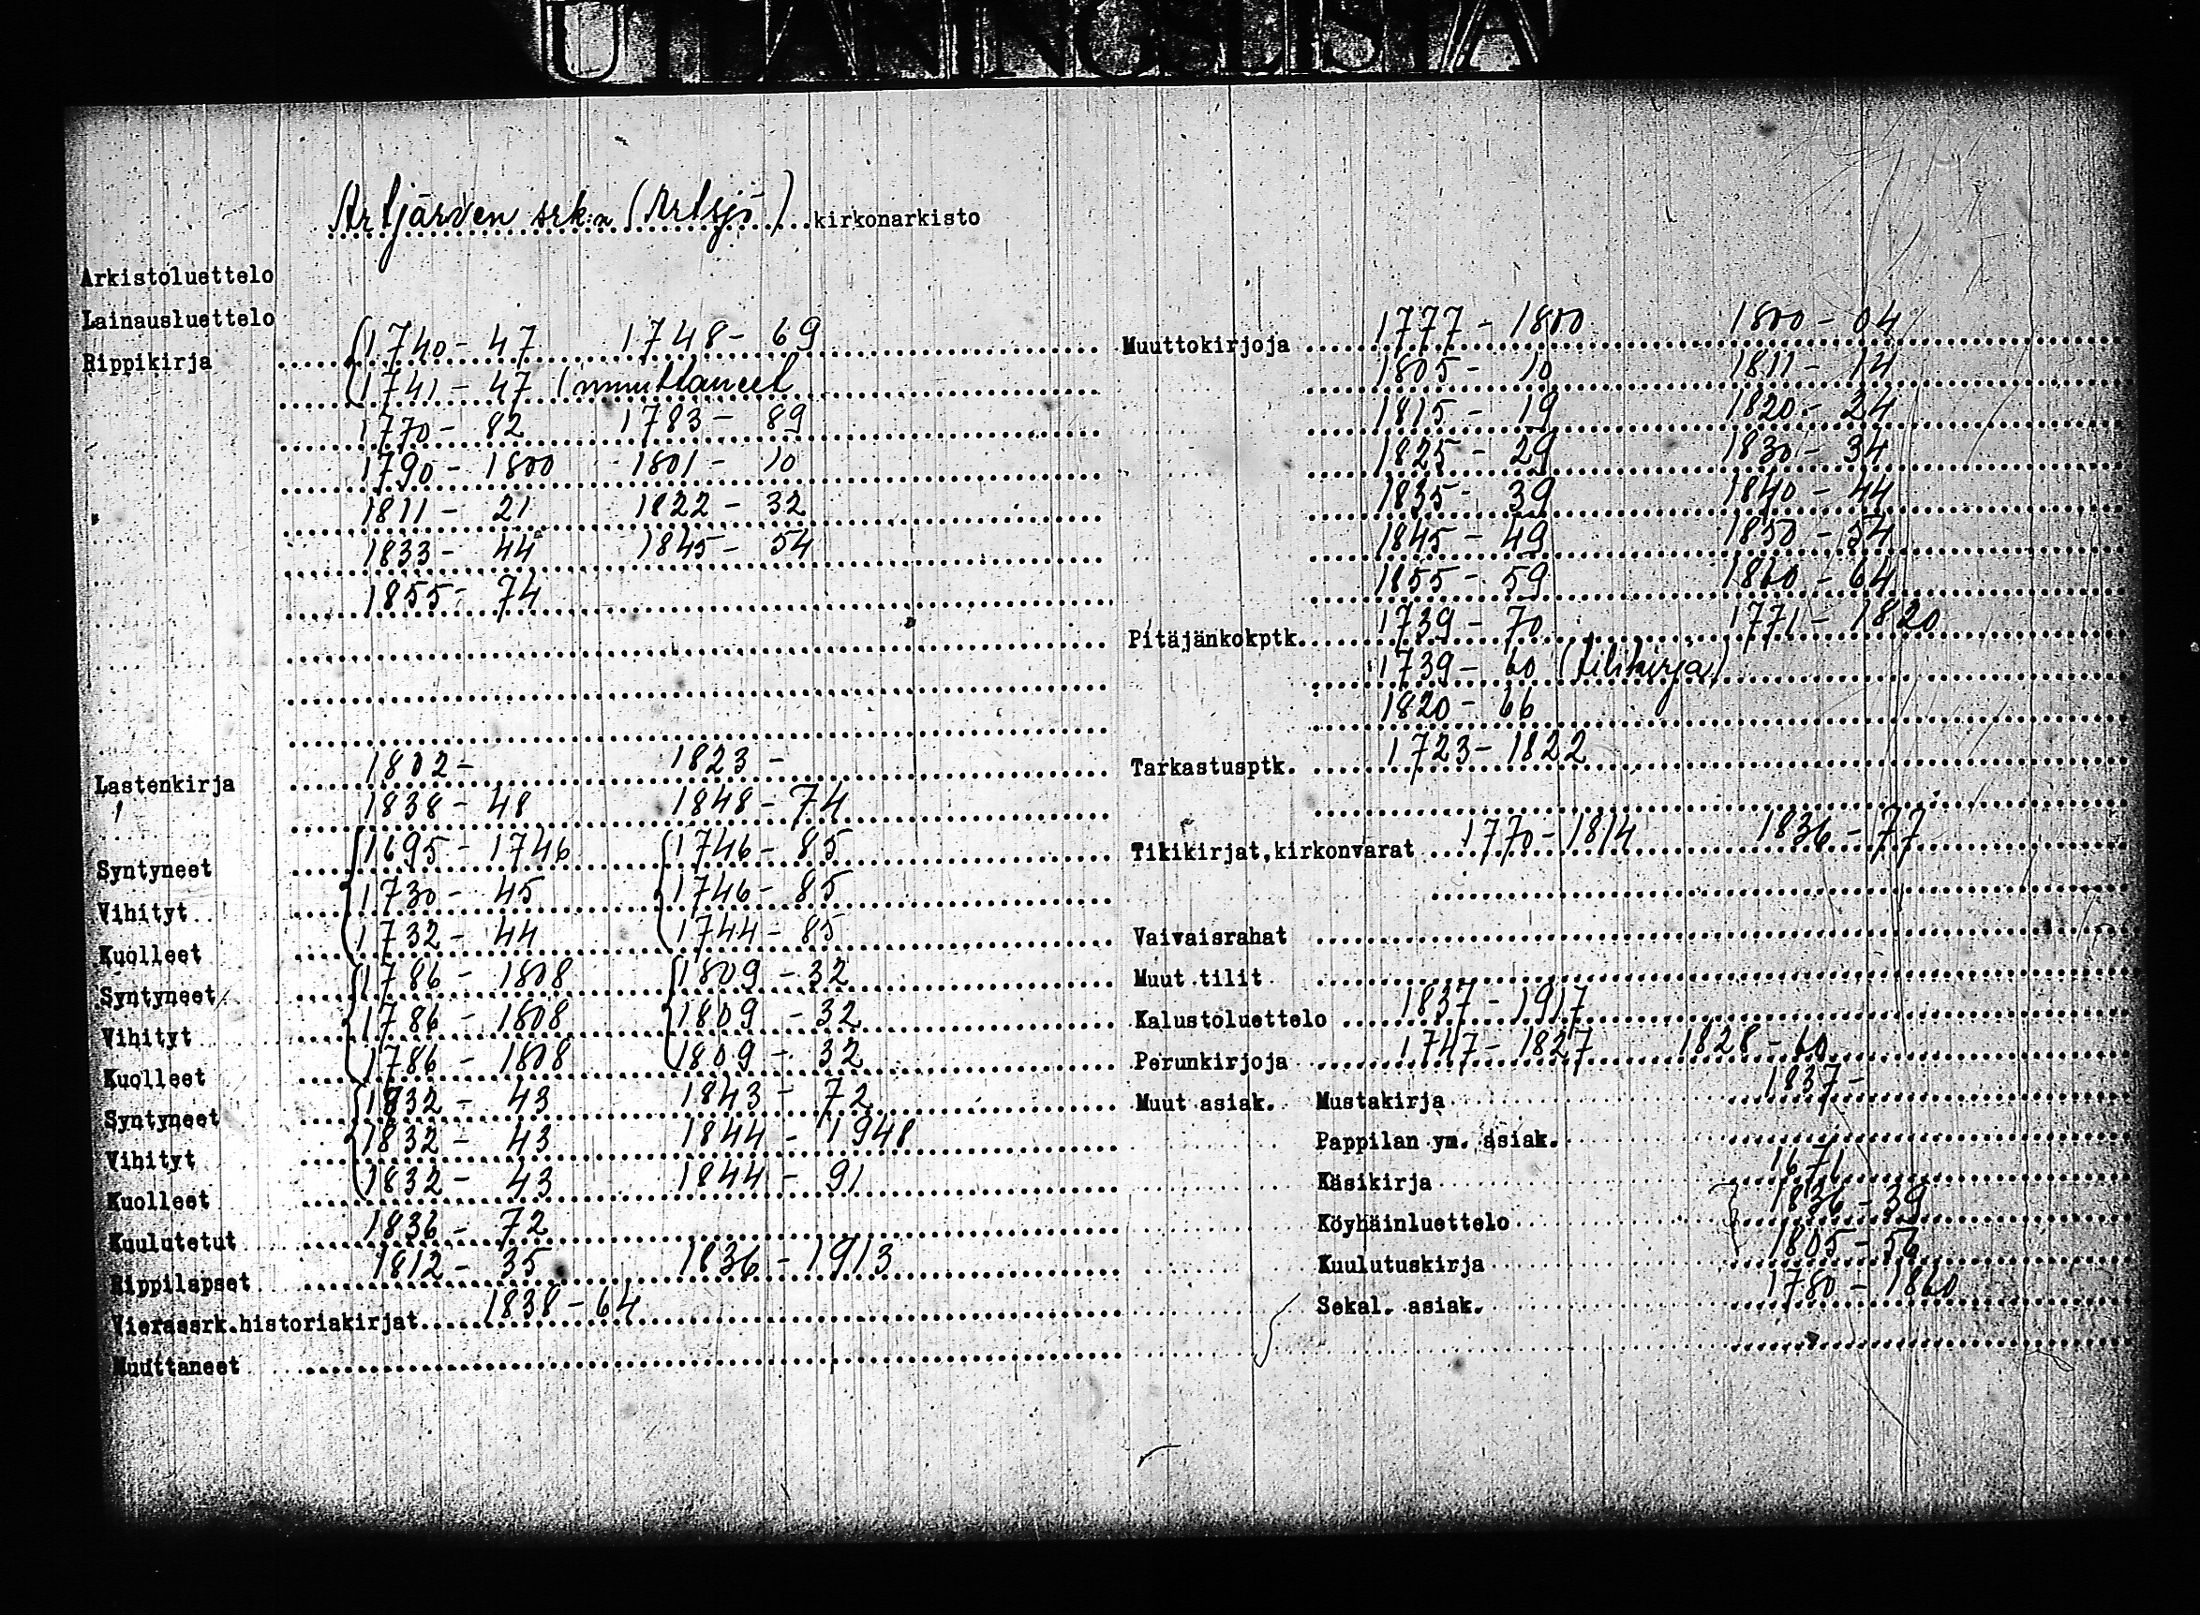 UTLÅNINGSLISTA
Artjärven srk:n (Artsjö) kirkonarkisto
Arkistoluettelo
Lainausluettelo
Rippikirja 1740-47 1748-69
1741-47 (muuttaneet
1770-82 1783-89
1790-1800 1801-10
1811-21 1822-32
1833-44 1845-54
1855-74
Lastenkirja 1802- 1823-
1838-48 1848-74
Syntyneet 1695-1746 1746-85
Vihityt 1730-45 1746-85
Kuolleet 1732-44 1744-85
Syntyneet 1786-1808 1809-32
Vihityt 1786-1808 1809-32
Kuolleet 1786-1808 1809-32
Syntyneet 1832-43 1843-72
Vihityt 1832-43 1844-1948
Kuolleet 1832-43 1844-91
Kuulutetut 1836-72
Rippilapset 1812-35 1836-1913
Vierassrk.historiakirjat 1838-64
Muuttaneet
Muuttokirjoja 1777-1800 1800-04
1805-10 1811-14
1815-19 1820-24
1825-29 1830-34
1835-39 1840-44
1845-49 1850-54
1855-59 1860-64
Pitäjänkokptk. 1739-70 1771-1820
1739-60 (tilikirja)
1820-66
Tarkastusptk. 1723-1822
Tikikirjat,kirkonvarat 1770-1814 1836-77
Vaivaisrahat
Muut tilit
Kalustoluettelo 1837-1917
Perunkirjoja 1747-1827 1828-60
Muut asiak. Mustakirja 1837-
Pappilan ym. asiak.
Käsikirja 1671
Köyhäinluettelo 1836-39
Kuulutuskirja 1805-56
Sekal. asiak. 1780-1860